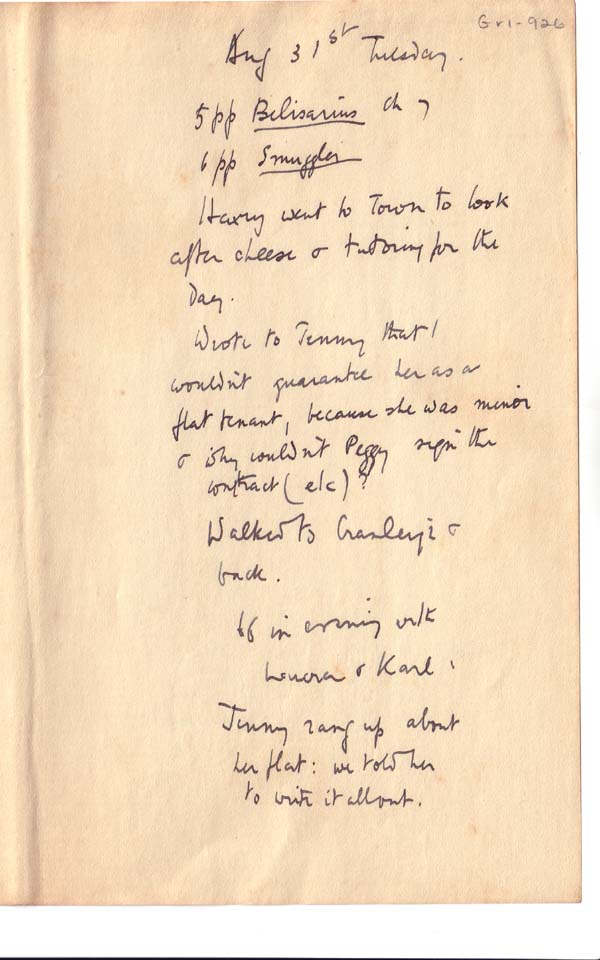 Gr1-926
Aug 31st Tuesday.
5pp Belisarius ch 7
6pp Smuggler
Harry went to Town to look
after cheese & tutoring for the
Day.
Wrote to Jenny that I
wouldn't guarantee her as a
flat tenant, because she was minor
& why wouldn't Peggy sign the
contract (etc)?
Walked to Cranleigh &
back.
in evening with
& Karl.
Jenny rang up about
her flat: we told her
to write it all out.